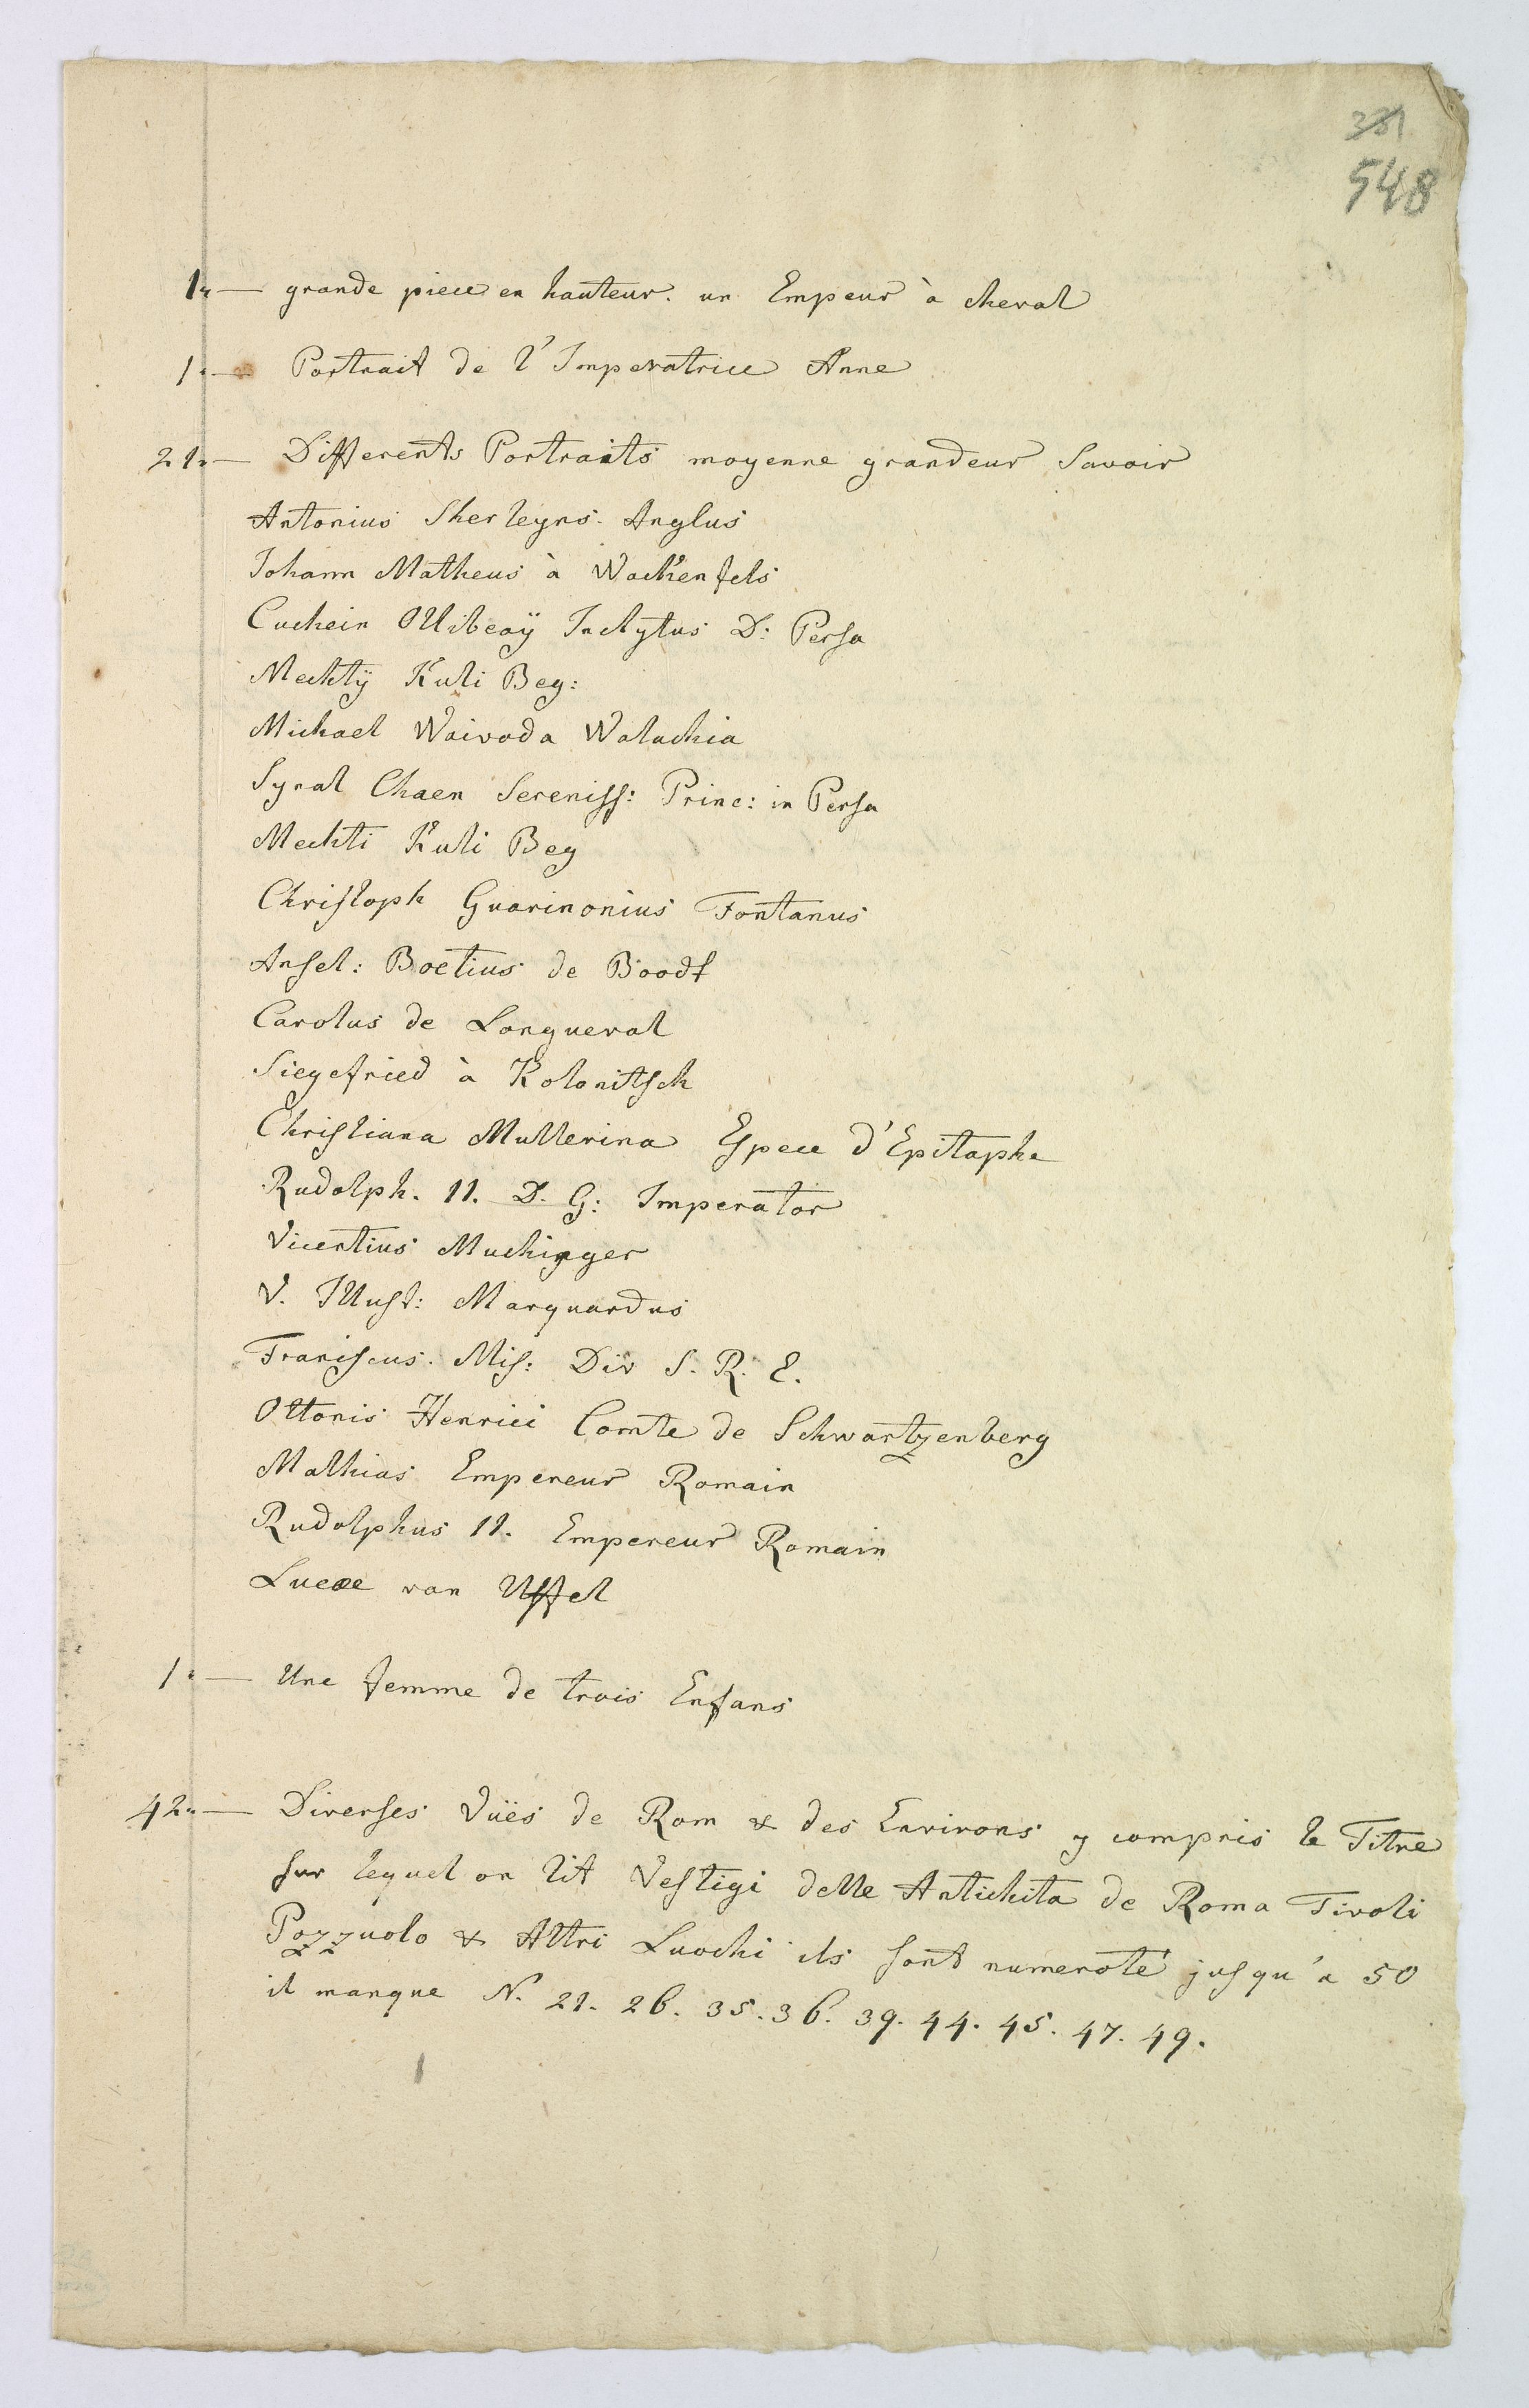 381
548
1„— grande piece en hauteur. un Empeur à cheval
1„— Portrait de l'Imperatrice Anne
21„— Differents Portraits moyenne grandeur Savoir
Antonius Sherleyns. Anglus
Johann Matheus à Wackenfels
Cuchein Ollibeaÿ Inclytus D: Persa
Mechtÿ Kuli Beg:
Michael Waivoda Walachia
Synal Chaen Sereniss: Princ: in Persa
Mechti Kuli Beg
Christoph Guarinonius Fontanus
Ansel: Boetius de Boodt
Carolus de Longueval
Siegefried à Kolonitsch
Christiana Mullerina Espece d'Epitaphe
Rudolph. 11. D. G: Imperator
Vicentius Muchinger
V. Illust: Marquardus
Franiscus. Mis: Div S. R. E.
Ottonis Henrici Comte de Schwartzenberg
Mathias Empereur Romain
Rudolphus 11. Empereur Romain
Lucae van Uffel
1„— Une femme de trois Enfans
42„— Diverses Vuës de Rom & des Environs y compris le Titre
sur lequel on lit Vestigi delle Antichita de Roma Tivoli
Pozzuolo & Altri Luochi ils sont numeroté jusqu'a 50
il manque N. 21. 26. 35. 36. 39. 44. 45. 47. 49.